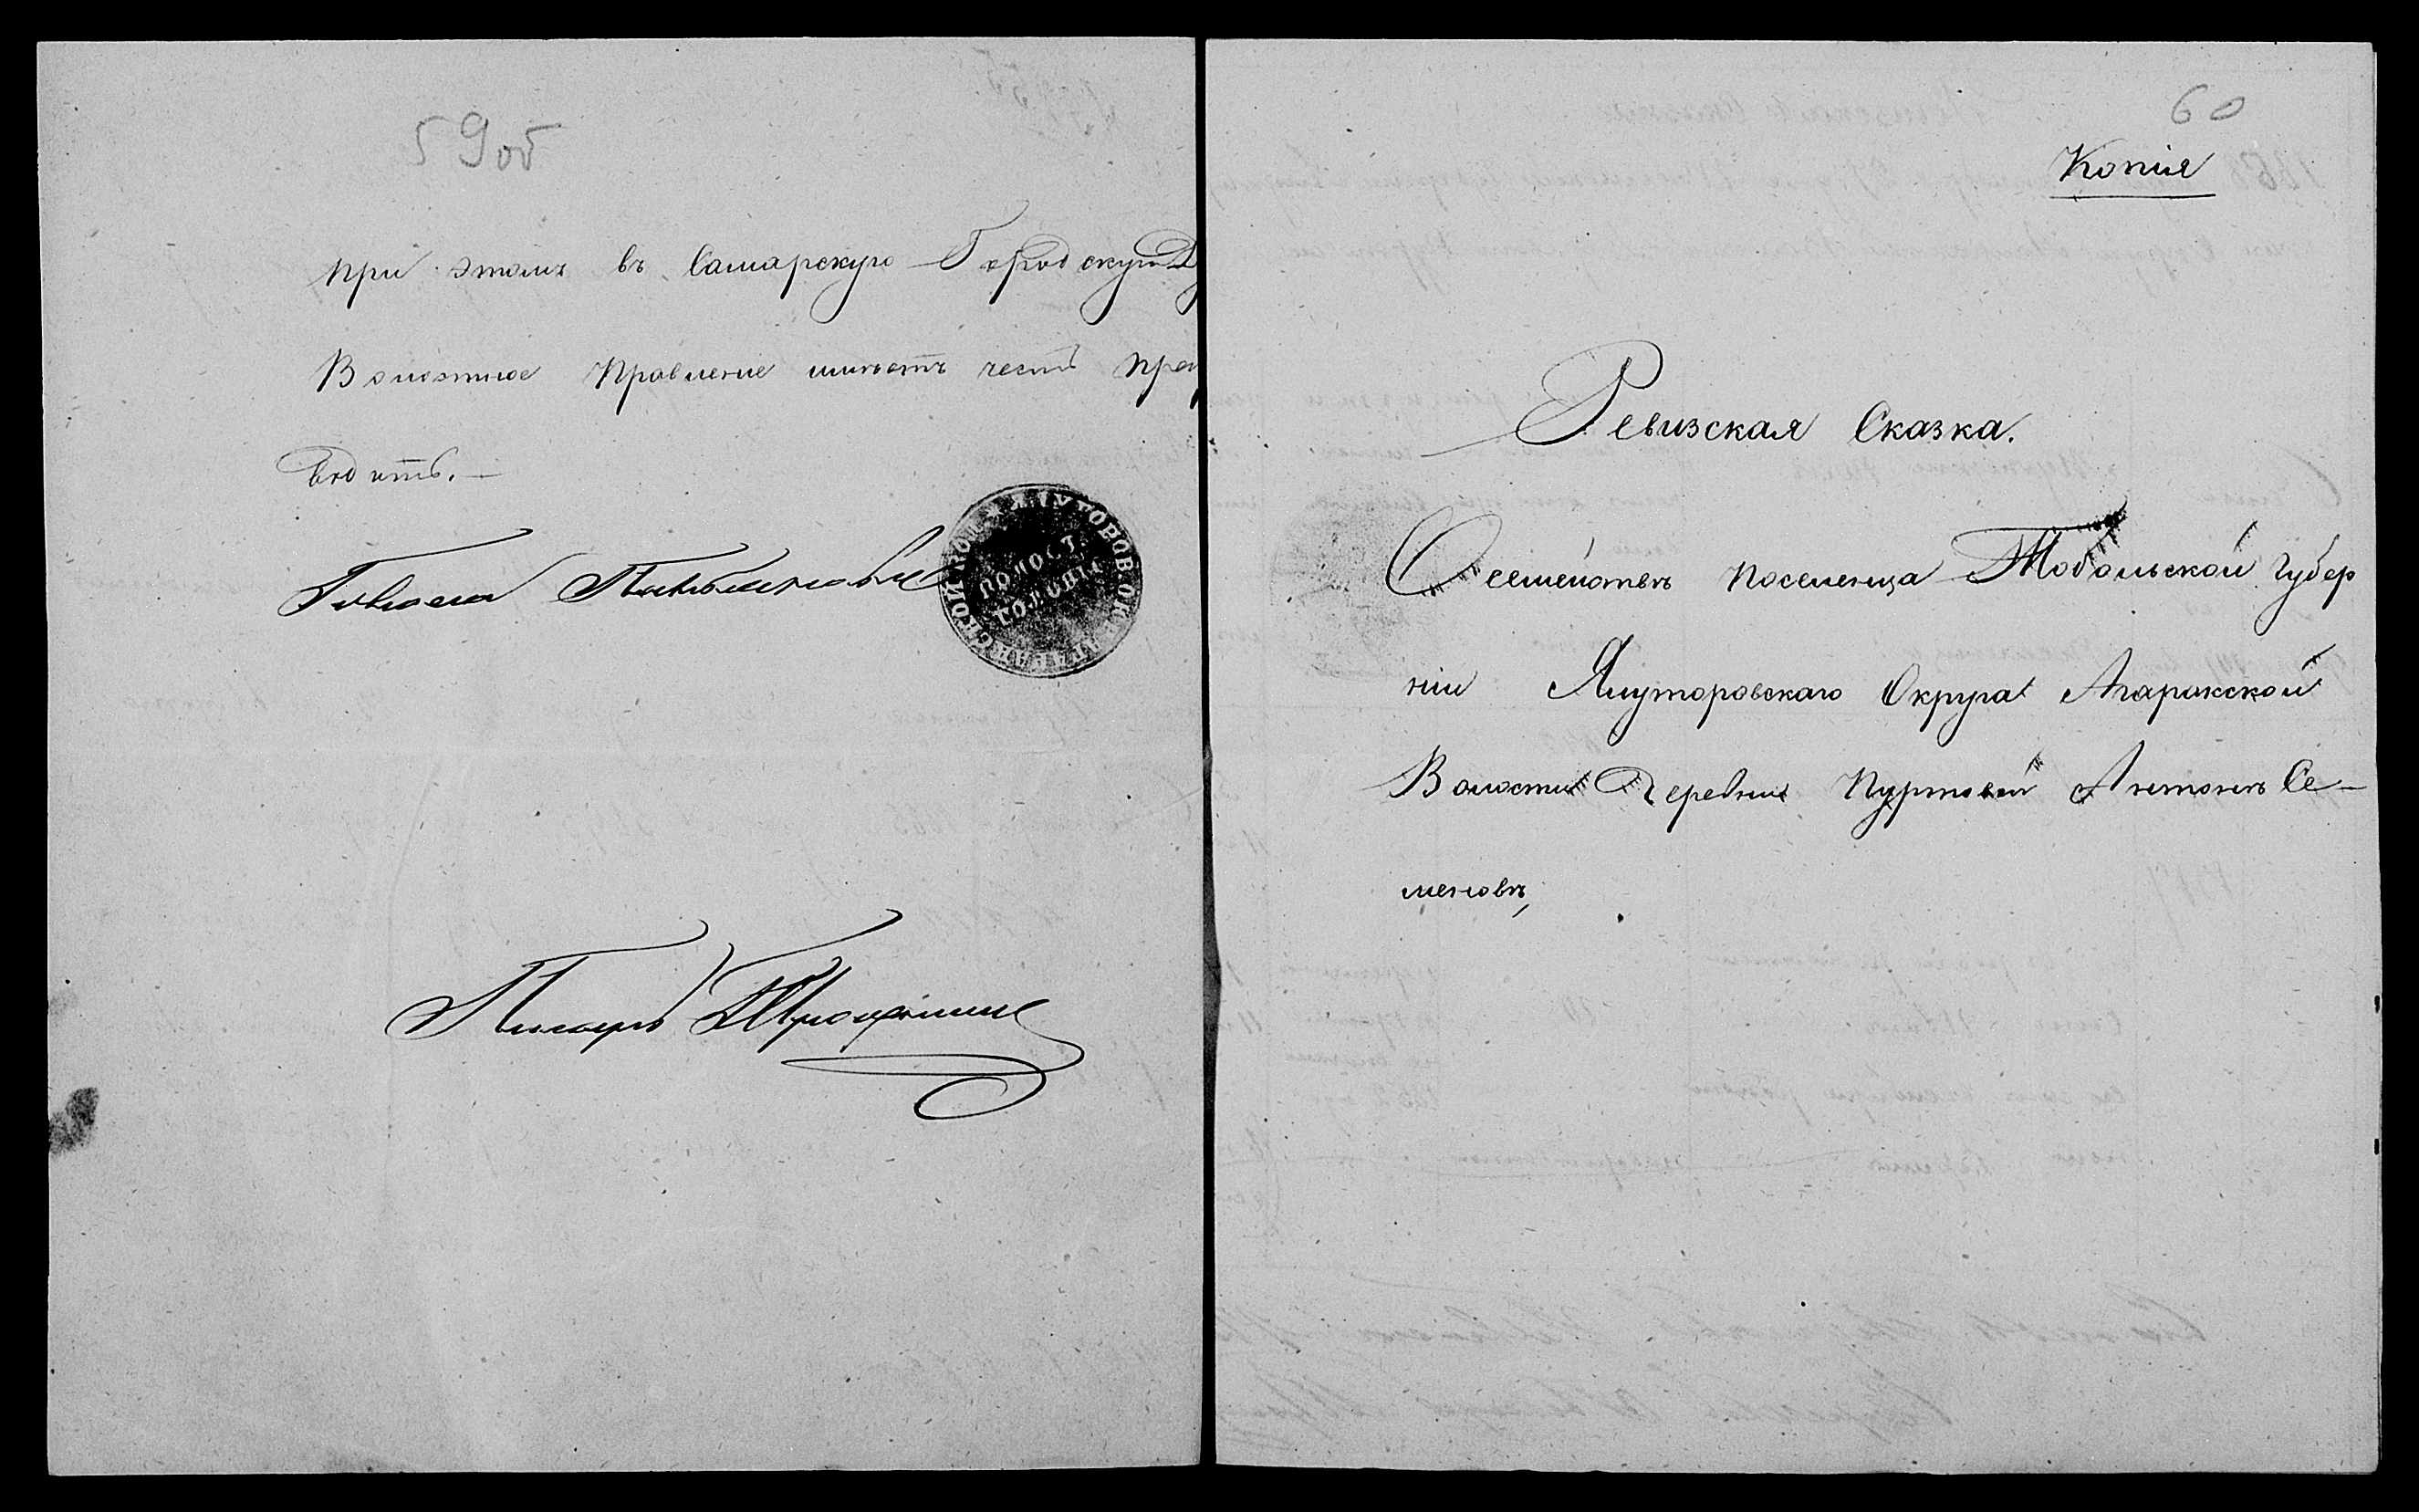 59об
при этомъ въ Самарскую Городскую Д
Волостное Правленіе имѣетъ честь пре
водить. —
Голова
Писарь
ВОЛОСТ.
ГОЛОВЫ
60
Копія
Ревизская Сказка.
О семействѣ поселенца Тобольской Губер
ніи Ялуторовскаго Округа Агаракской
Волости Деревни Пуртовой Антонъ Се—
меновъ,